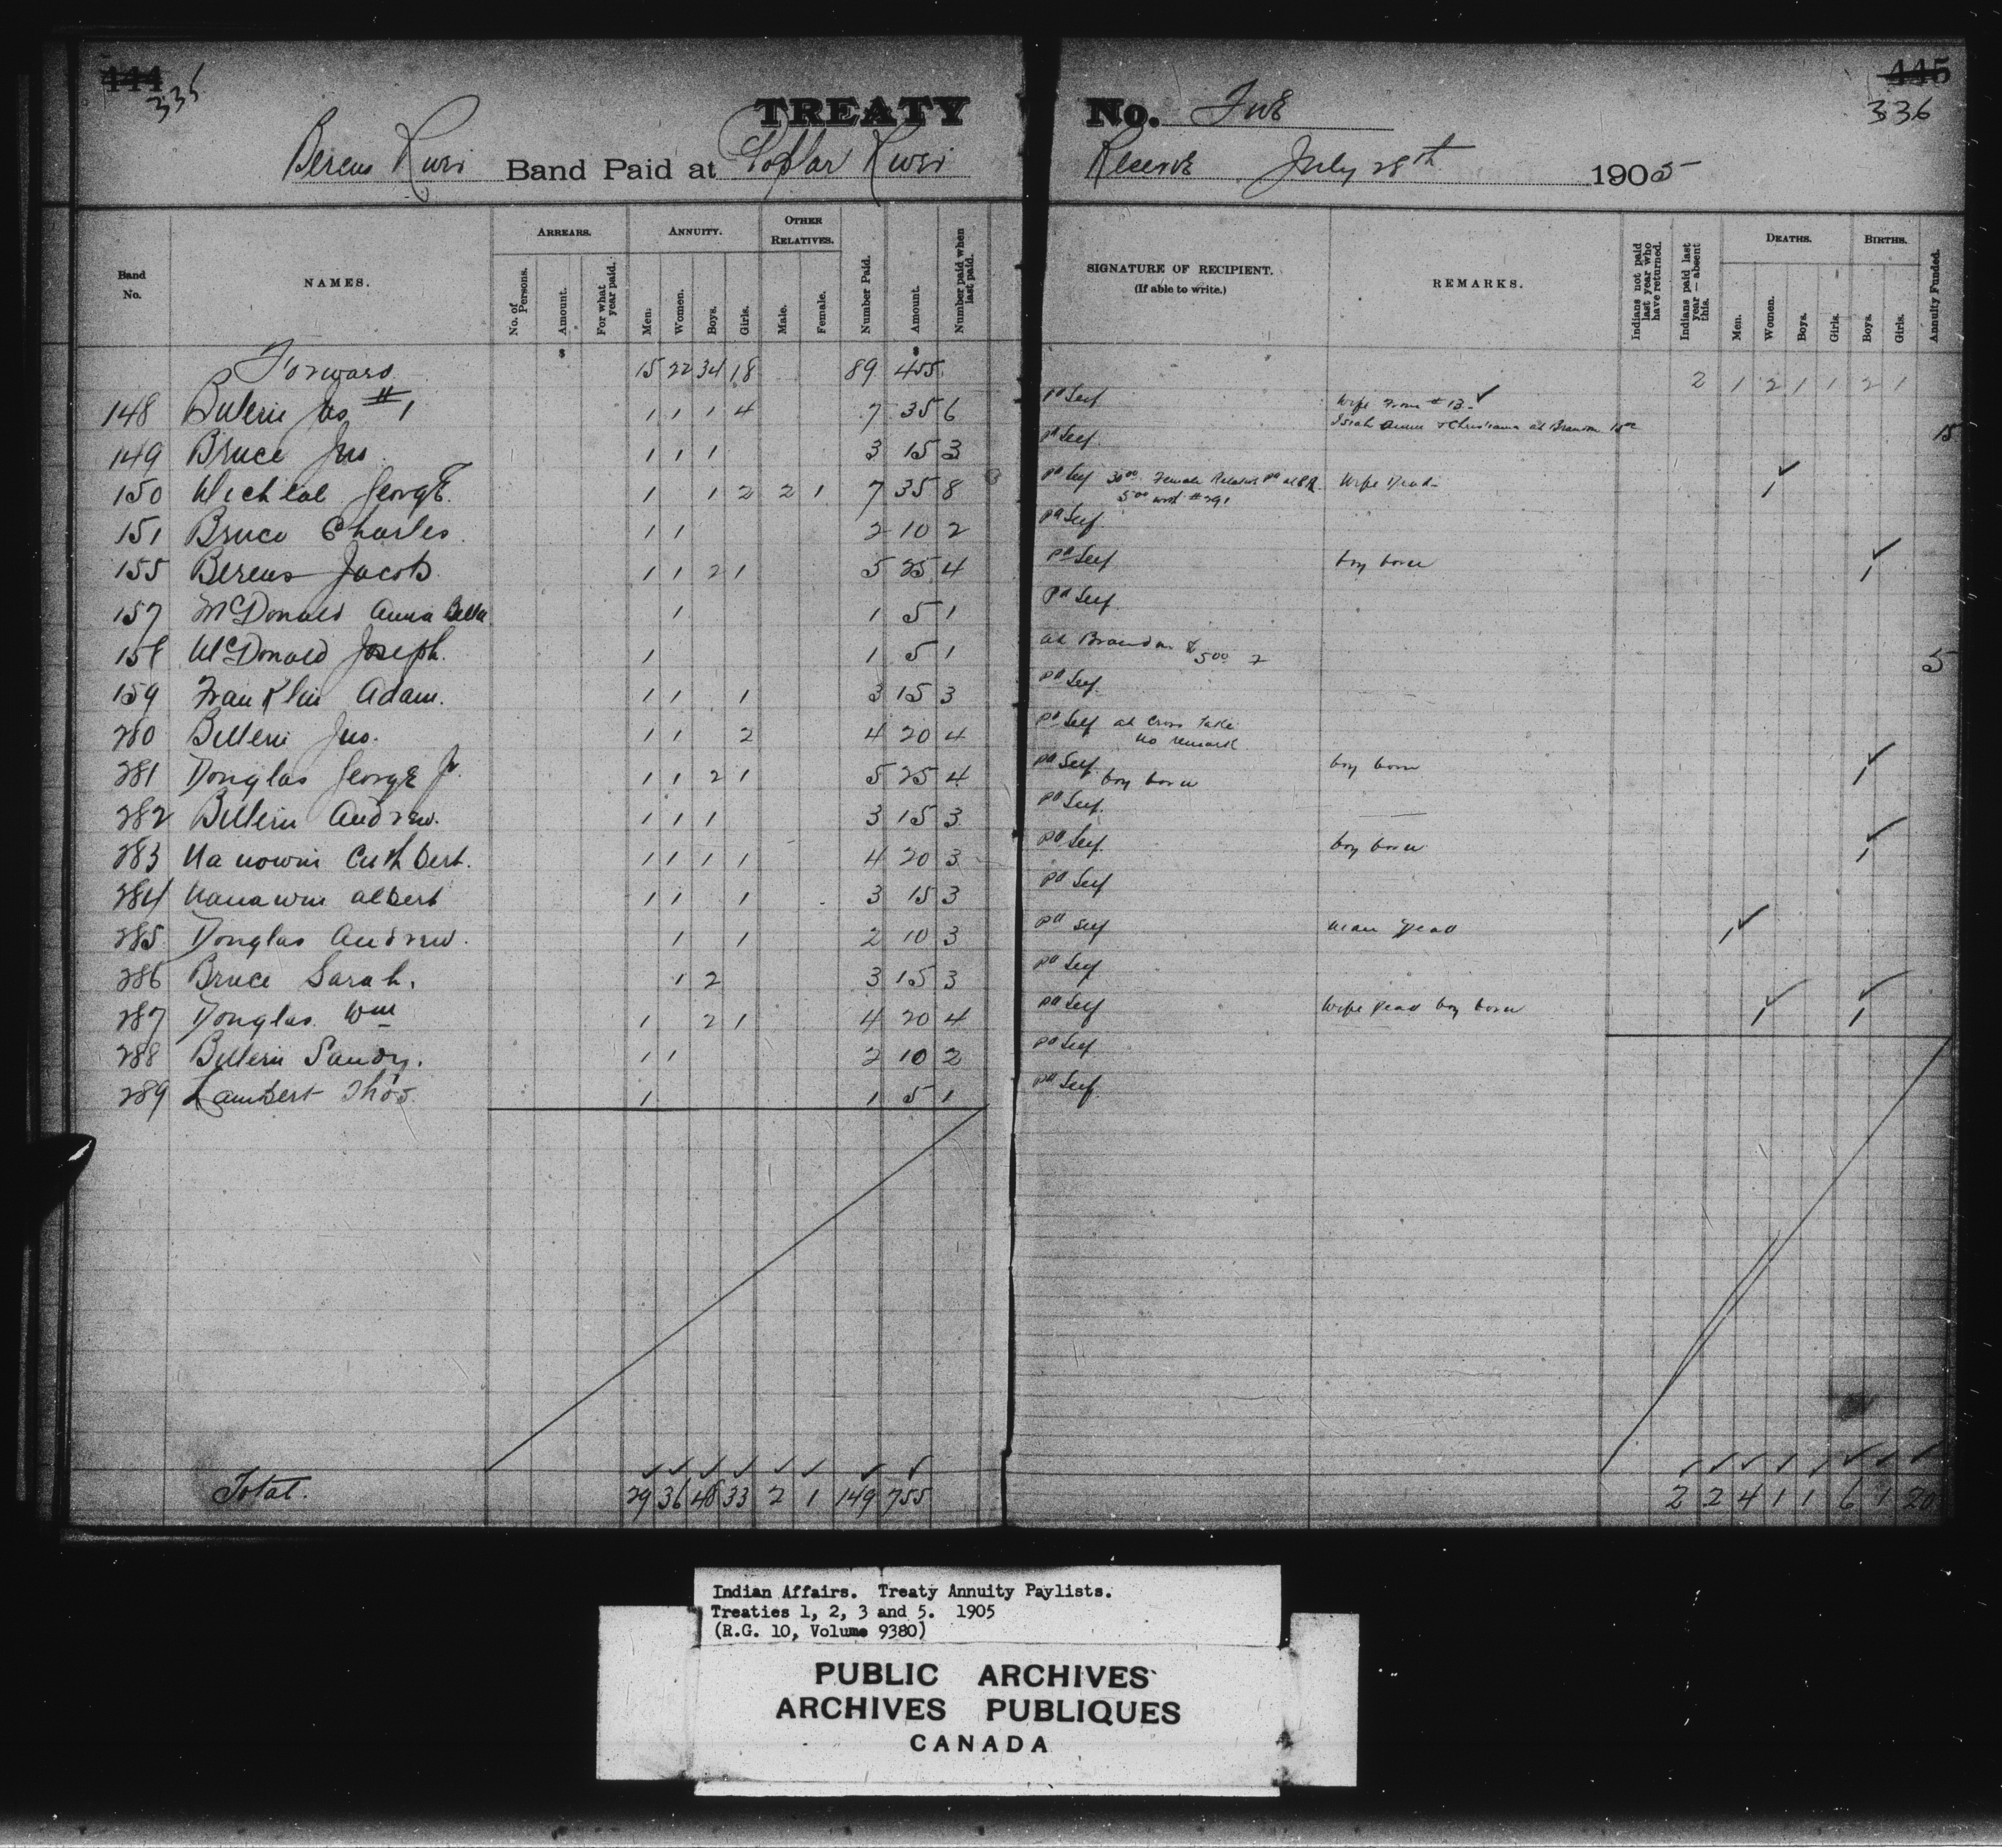 444 445
335 336
TREATY No. Five
Berens River Band Paid at Poplar River Reserve July 28th 1905
Band No. NAMES. ARREARS. ANNUITY. OTHER RELATIVES. Number Paid. Amount. Number paid when last paid. SIGNATURE OF RECIPIENT. (If able to write.) REMARKS. Indians not paid last year who have returned. Indians paid last year—absent this. DEATHS. BIRTHS. Annuity Funded.
No. of Persons. Amount. For what year paid. Men. Women. Boys. Girls. Male. Female. Men. Women. Boys. Girls. Boys. Girls.
$ $
Forward 15 22 34 18 89 455 2 1 2 1 1 2 1
148 #1 1 1 1 4 7 35 6 pd Self Wife from #13 ✓
at Brandon 15
149 Bruce Jno 1 1 1 3 15 3 pd Self
150 George 1 1 2 2 1 7 35 8 pd Self 30.00 Female Relative pd at B R Wife Dead 1 ✓
5.00 with #291
151 Bruce Charles 1 1 2 10 2 pd Self
155 Berens Jacob 1 1 2 1 5 25 4 pd Self boy born 1 ✓
157 McDonald Anna Bella 1 1 5 1 pd Self
158 McDonald Joseph 1 1 5 1 at Brandon $5.00 5
159 Franklin Adam. 1 1 1 3 15 3 pd Self
280 Jno. 1 1 2 4 20 4 pd Self at Cross Lake
no remark
281 Douglas George Jr. 1 1 2 1 5 25 4 pd Self boy born boy born 1 ✓
282 Andrew. 1 1 1 3 15 3 pd Self
283 Nanowin Cuthbert. 1 1 1 1 4 20 3 pd Self boy born 1 ✓
284 Nanawin Albert 1 1 1 3 15 3 pd Self
285 Douglas Andrew. 1 1 2 10 3 pd Self man Dead 1 ✓
286 Bruce Sarah. 1 2 3 15 3 pd Self
287 Douglas Wm 1 2 1 4 20 4 pd Self Wife Dead boy born 1 ✓ 1 ✓
288 Sandy. 1 1 2 10 2 pd Self
289 Lambert Thos. 1 1 5 1 pd Self
Total. 29 36 48 33 2 1 149 755 2 2 4 1 1 6 1 20
Indian Affairs. Treaty Annuity Paylists.
Treaties 1, 2, 3 and 5. 1905
(R.G. 10, Volume 9380)
PUBLIC ARCHIVES
ARCHIVES PUBLIQUES
CANADA